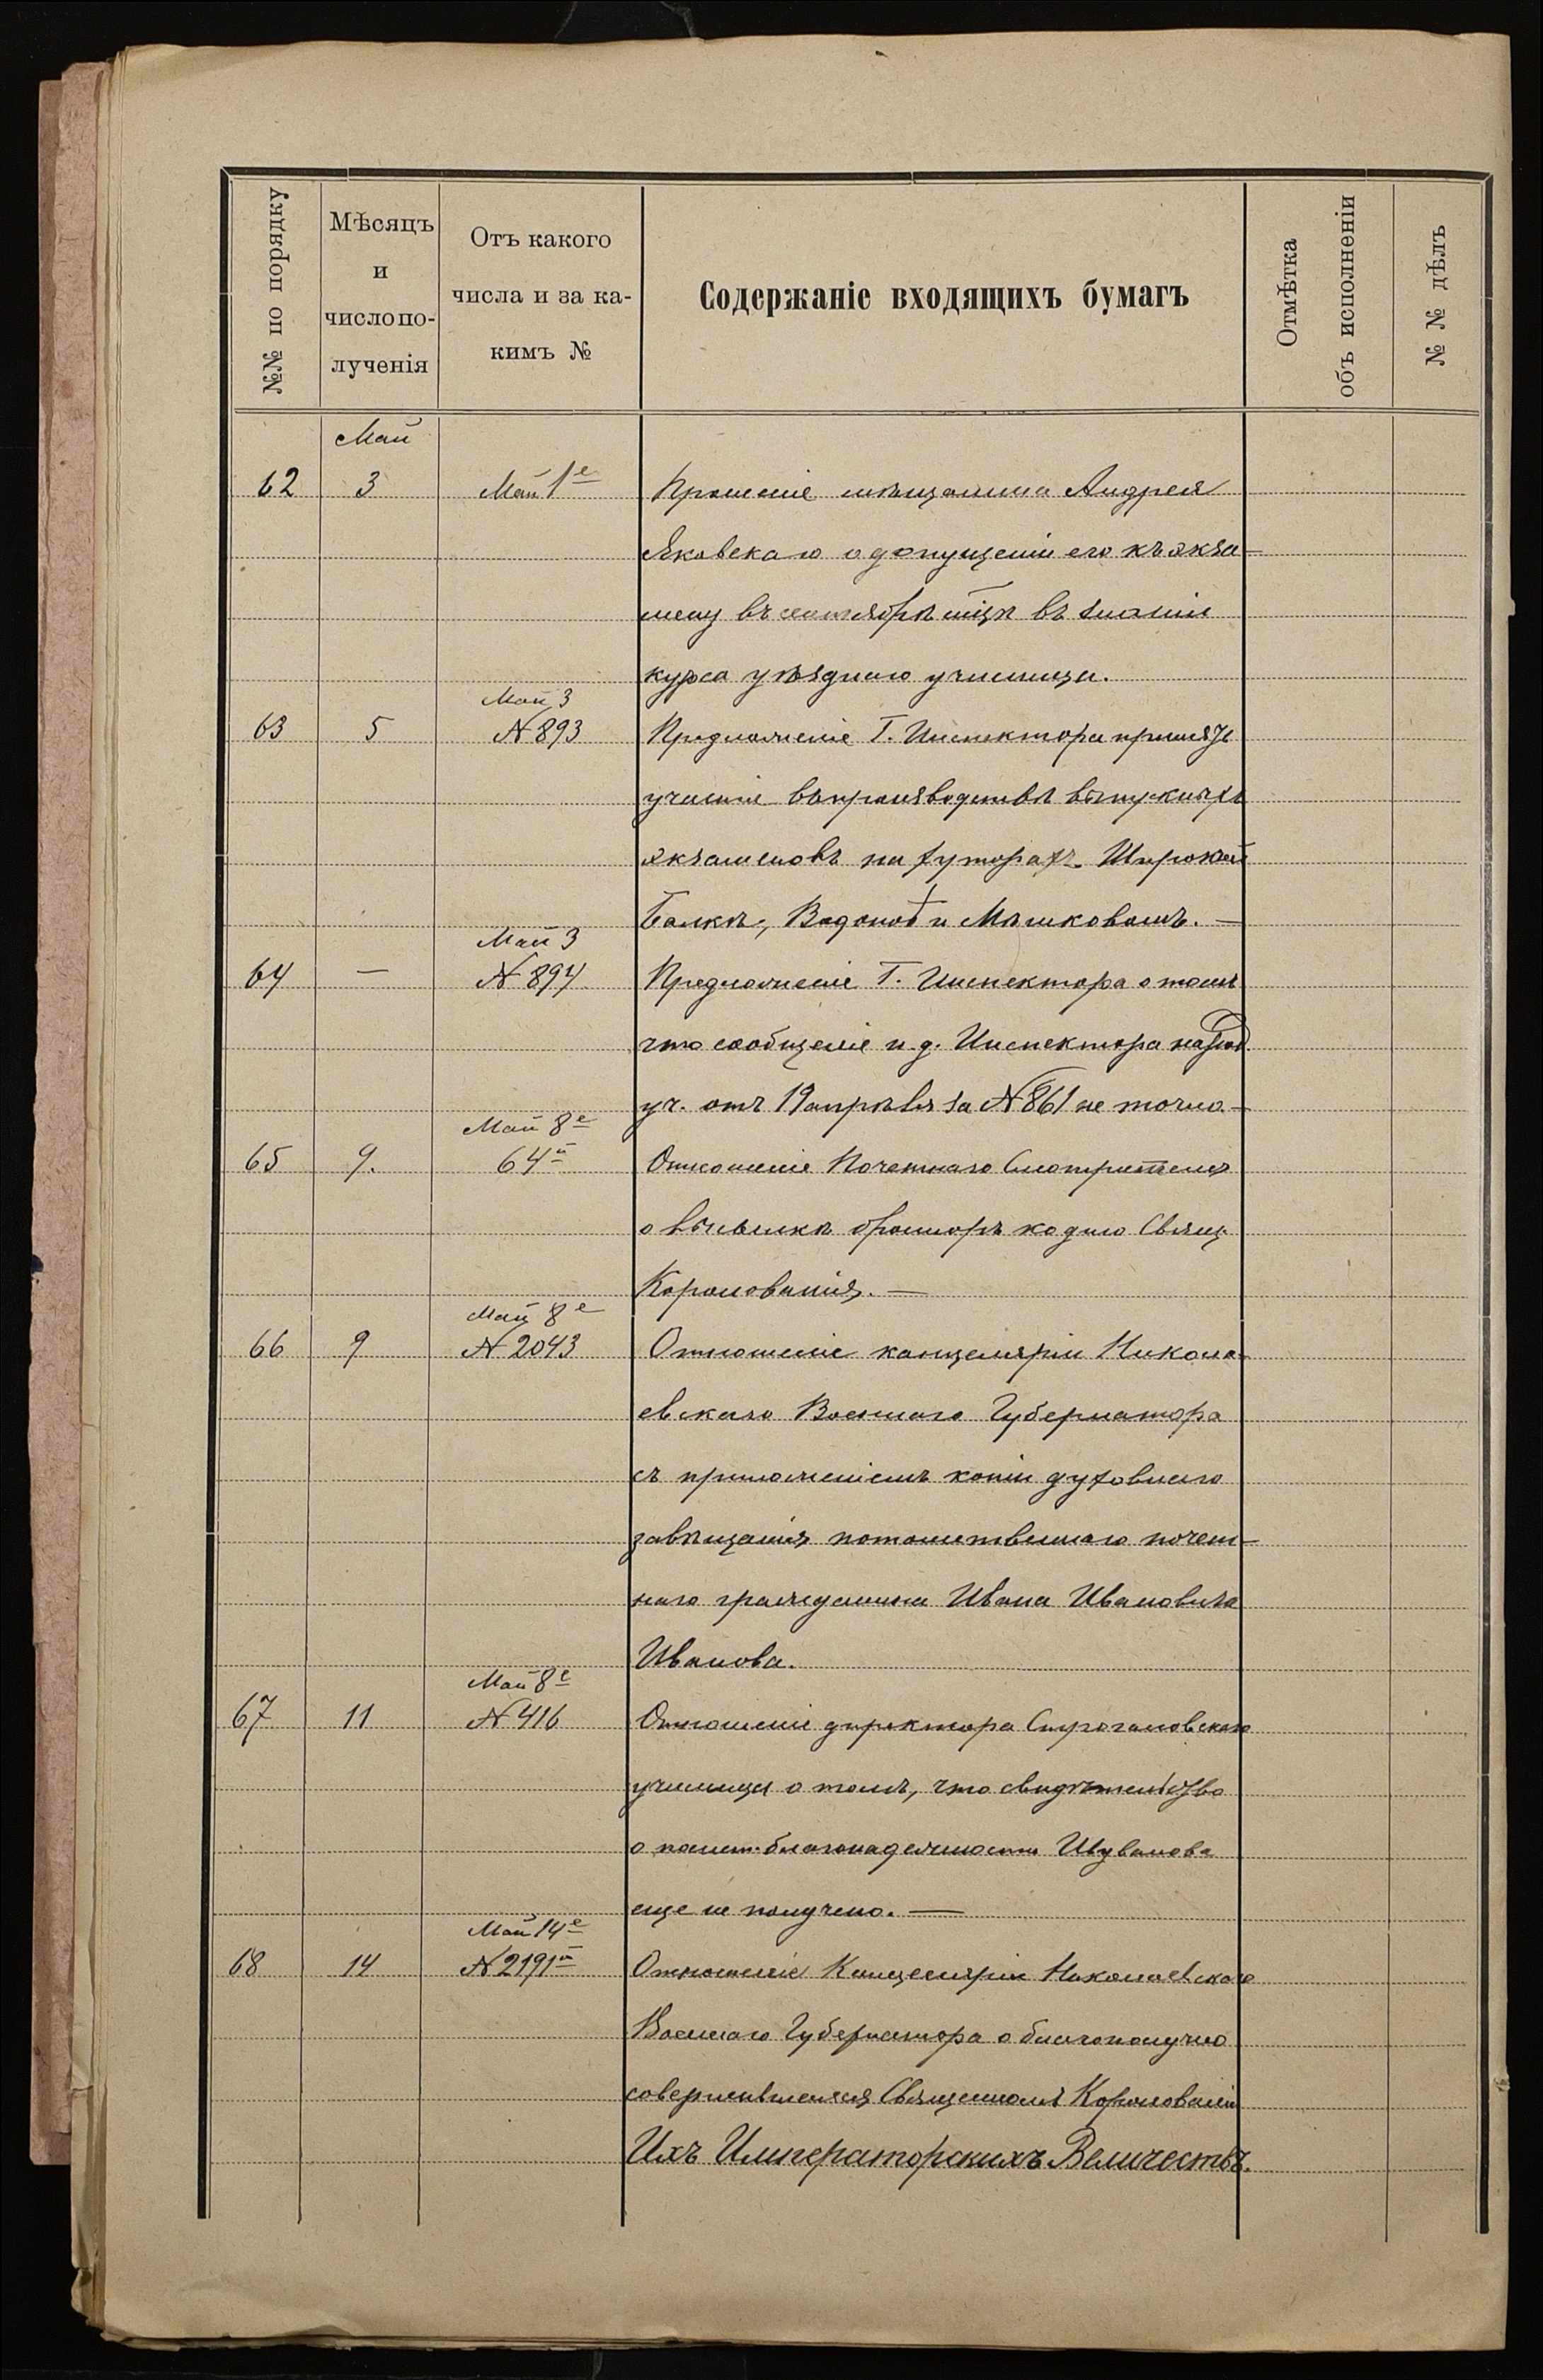 №№ по порядку
Мѣсяцъ
и
число по-
лученія
Отъ какого
числа и за ка-
кимъ №
Содержаніе входящихъ бумагъ
Отмѣтка
объ исполненіи
№ № дѣлъ
Май
62 3 Май 1е Прошеніе мѣщанина Андрея
Яковскаго о допущеніи его къ экза-
мену въ сентябрѣ мцѣ въ знаніи
курса уѣзднаго училища.
Май 3
63 5 N 893 Предложеніе Г. Инспектора принять
участіе въ производствѣ выпускныхъ
экзаменовъ на хуторахъ Широкой
Балкѣ, Водоной и Мѣшковомъ. —
Май 3
64 — N 894 Предложеніе Г. Инспектора о томъ
что сообщеніе и. д. Инспектора народ.
уч. отъ 19 апрѣля за N 861 не точно —
Май 8е
65 9. 64й Отношеніе Почетнаго Смотрителя
о высылкѣ брошюръ ко дню Свящ.
Коронованія. —
Май 8е
66 9 N 2043 Отношеніе канцеляріи Никола-
евскаго Военнаго Губернатора
съ приложеніемъ копіи духовнаго
завѣщанія потомственнаго почет-
наго гражданина Ивана Ивановича
Иванова.
Май 8е
67 11 N 416 Отношеніе директора Строгановскаго
училища о томъ, что свидѣтельство
о полит. благонадежности Шувалова
еще не получено. —
Май 14е
68 14 N 2191й Отношеніе Канцеляріи Николаевскаго
Военнаго Губернатора о благополучно
совершившемся Священномъ Коронованіи
Ихъ Императорскихъ Величествъ.